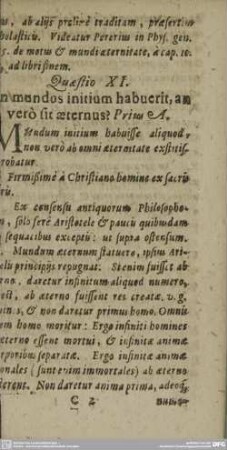 us, ab alijs prolixè traditam, præsertim
holasticis. Videatur Pererius in Phys. gen.
5. de motu & mundi æternitate, à cap. 10.
ad libri finem.
Quæstio XI.
n mundus initium habuerit, an
verò sit æternus? Prius A.
Mundum initium habuisse aliquod,
non verò ab omni æternitate exstitis-
robatur.
Firmissimè à Christiano homine ex sacris
ris.
Ex consensu antiquorum Philosopho-
n, solo ferè Aristotele & paucis quibusdam
sequacibus exceptis: ut supra ostensum.
. Mundum æternum statuere, ipsius Ari-
lis principijs repugnat. Etenim fuisset ab
rno, daretur infinitum aliquod numero,
est, ab æterno fuissent res creatæ. v. g.
in.s, & non daretur primus homo. Omnis
em homo moritur: Ergo infiniti homines
æterno essent mortui, & infinitæ animæ
rporibus separatæ. Ergo infinitæ animæ
onales (sunt enim immortales) ab æterno
erent. Non daretur anima prima, adeoq;
C 2